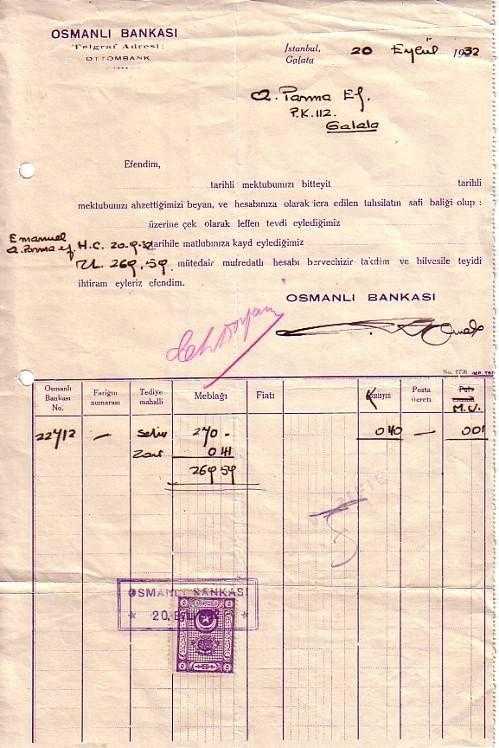 OSMANLI BANKASI
Telgraf Adresi:
OTTOMBANK
İstanbul, 20 Eylül 1932
Galata
A. Parma Ef.
P.K. 112.
Galata
Efendim,
tarihli mektubunuzı bitteyit tarihli
mektubunuzı ahzettiğimizi beyan, ve hesabınıza olarak icra edilen tahsilatın safi baliği olup:
üzerine çek olarak leffen tevdi eylediğimiz
Emanuel
A. Parma ef H.C. 20.9.32 tarihile matlubınıza kayd eylediğimiz
269.59. mütedair mufredatlı hesabı berveçhizir takdim ve bilvesile teyidi
ihtiram eyleriz efendim.
OSMANLI BANKASI
No. 1738
Osmanlı Bankası No. Fariğın numarası Tediye mahalli Meblağı Fiatı Posta ücreti M.U.
22712 — 270 - 040 — 001
0 41
269 59
OSMANLI BANKASI
* 20. *